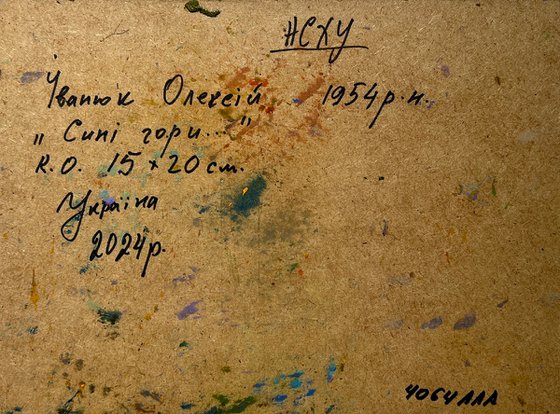 НСХУ
Іванюк Олексій 1954р.н.
„Сині гори..."
к.о. 15×20 см.
Україна
2024р.
4064ЛЛА